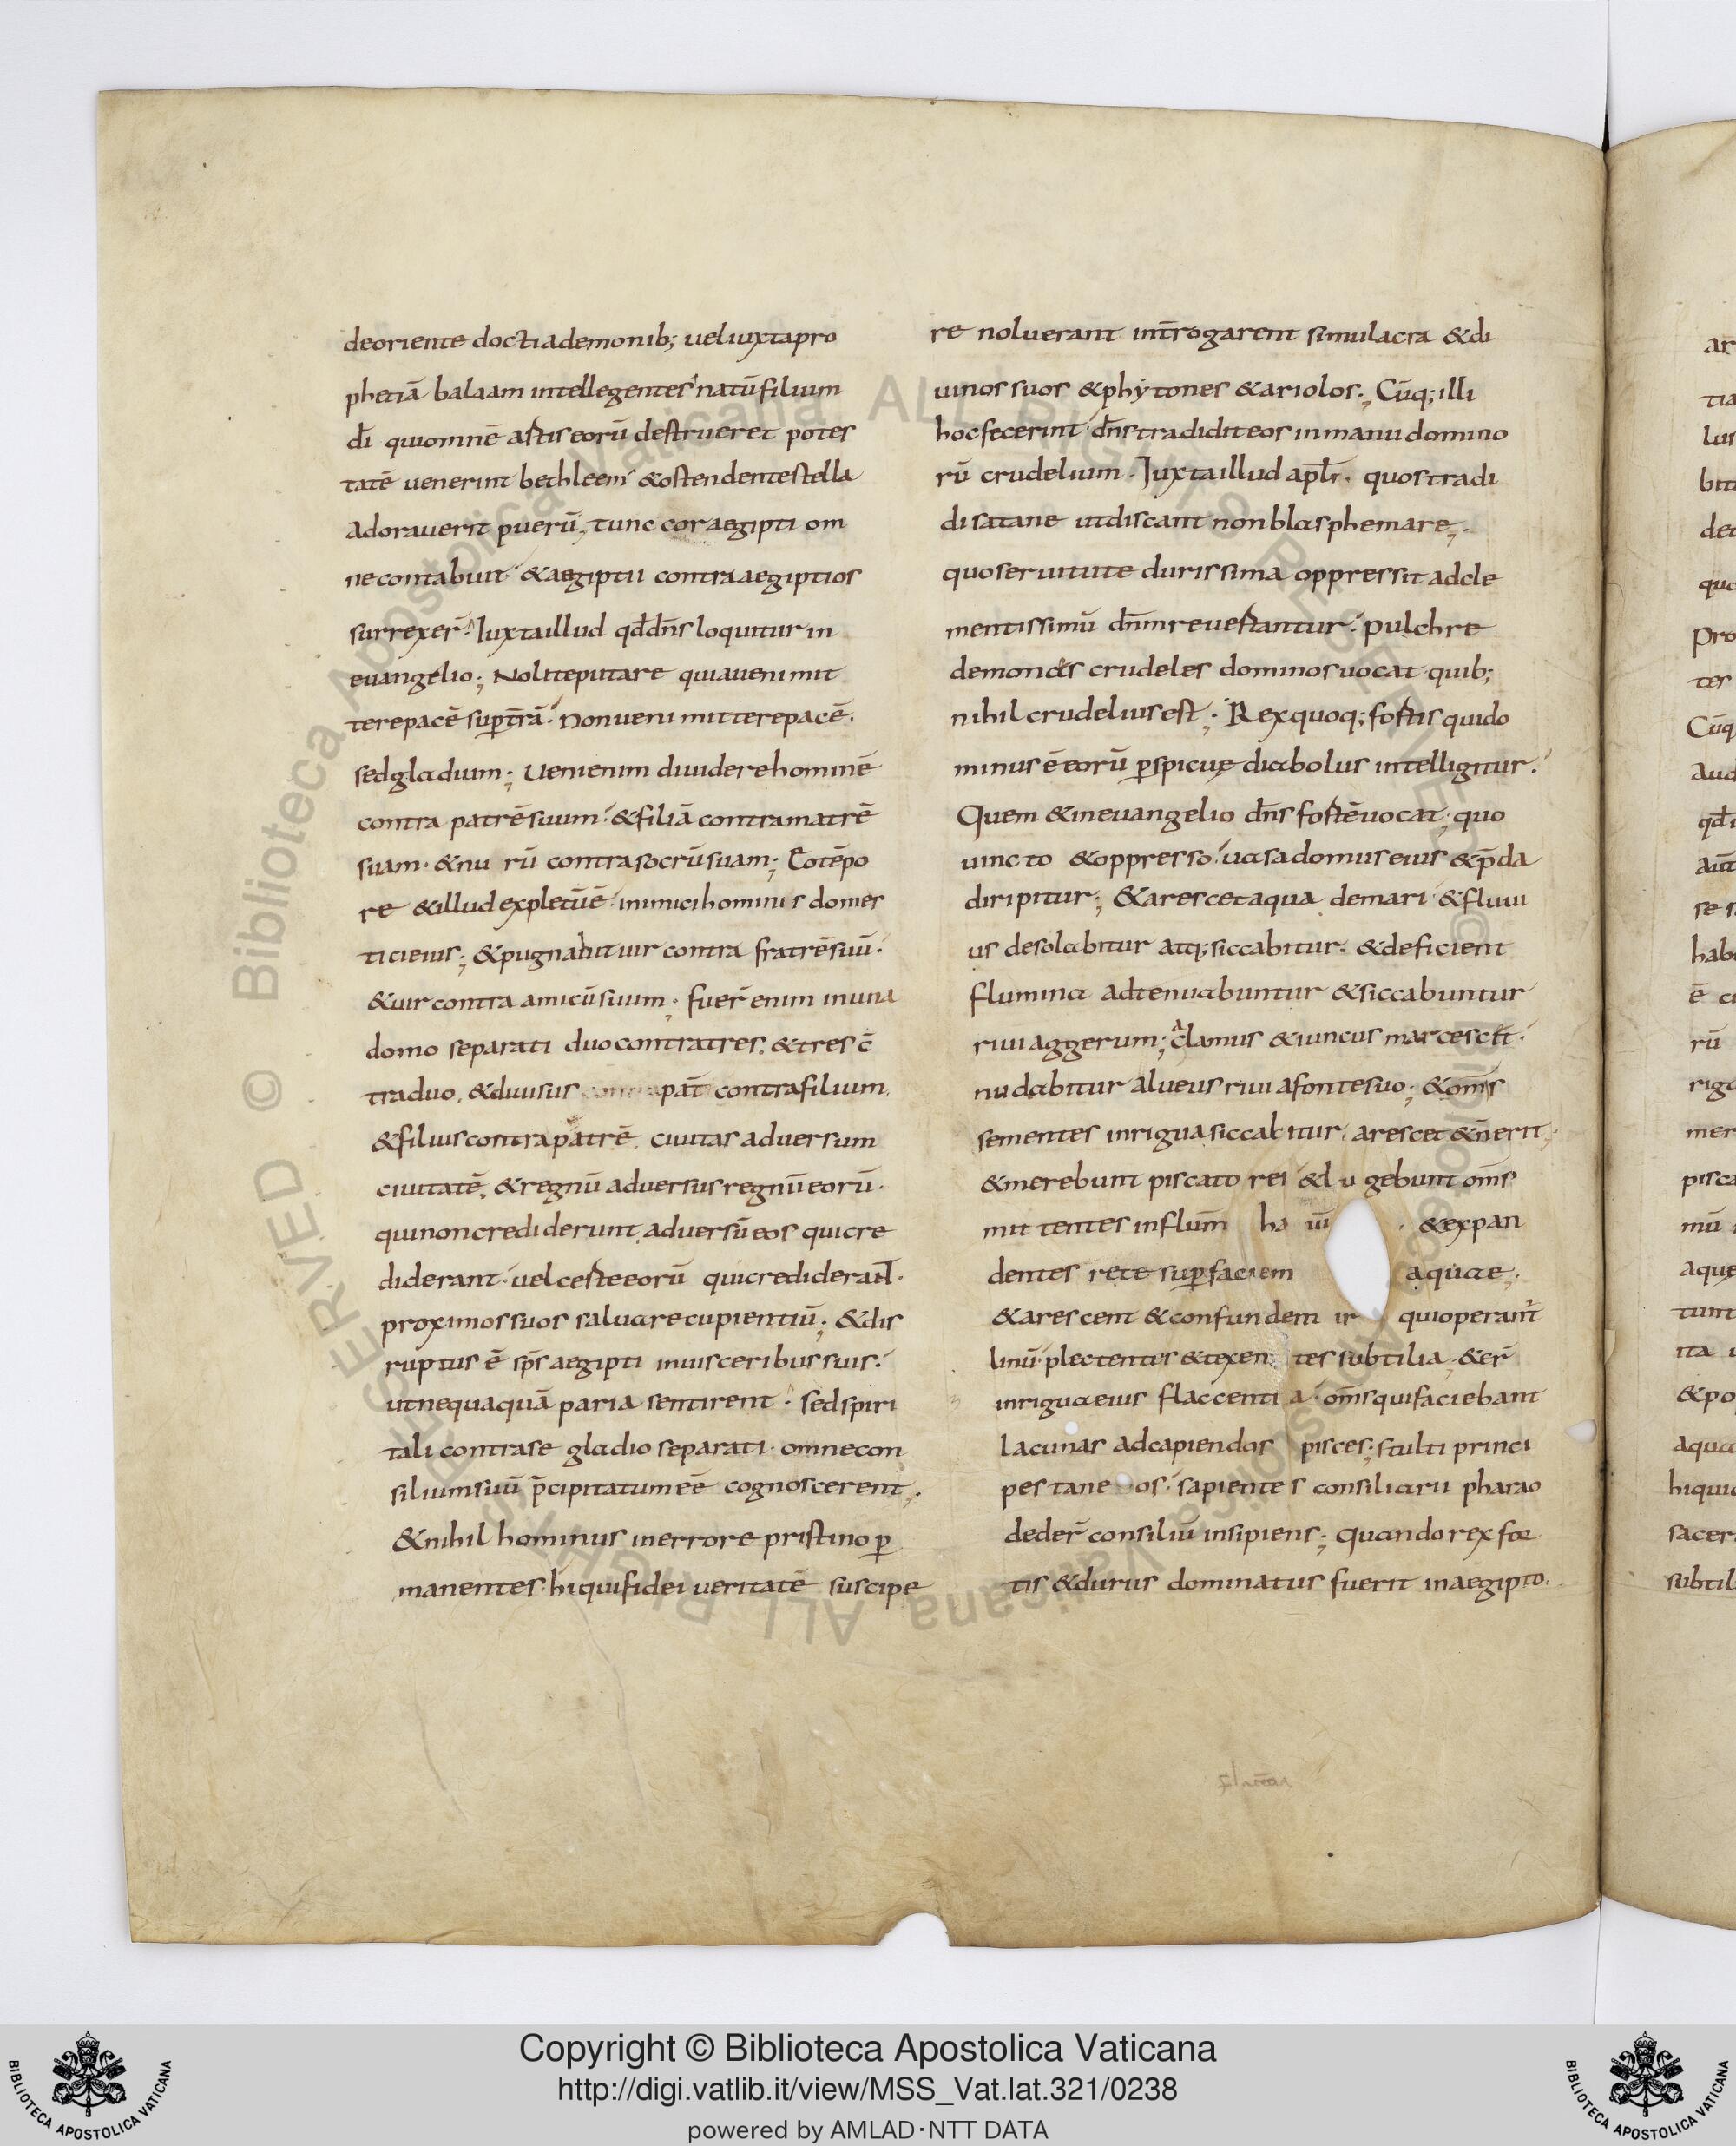 deoriente docti ademonib; ueliuxtapro
phetiā balaam intellegentes natū filium
dī quiomnē astis eorū destrueret potes
tatē uenerint bethleem &ostendente stella
adorauerit puerū, tunc cor aegipti om
ne contabuit &aegiptii contra aegiptios
surrexer̄ Iuxtaillud qd̄ dn̄s loquitur in
euangelio; Noliteputare quiaueni mit
tere pacē sup t̄rā. Non ueni mittere pacē.
sed gladium; Ueni enim diuidere hominē
contra patrē suum &filiā contra matrē
suam. &nu rū contra socrū suam; Eo tēpo
re &illud expletū ē inimici hominis domes
tici eius; &pugnabit uir contra fratrē suū.
&uir contra amicū suum. fuer̄ enim in una
domo separati duo contra tres. &tres c̄
tra duo, &diuisus contra pat̄ contra filium,
&filius contra patrē. ciuitas aduersum
ciuitatē, &regnū aduersus regnū eorū.
qui non crediderunt aduersū eos qui cre
diderant. uel ceste eorū qui crediderant.
proximos suos saluare cupientiū; &dis
ruptus ē sp̄s aegipti in uisceribus suis.
ut nequaquā paria sentirent. sed spiri
tali contra se gladio separati. omne con
silium suū p̄cipitatum eē cognoscerent.
&nihil hominus in errore pristino p
manentes. hi qui fidei ueritatē suscipe
re noluerant int̄rogarent simulacra &di
uinos suos &phytones &ariolos. Cūq; illi
hoc fecerint dn̄s tradidit eos in manu domino
rū crudelium. Iuxta illud apl̄i. quos tradi
di satane ut discant non blasphemare;
quos eruitute durissima oppressit ad cle
mentissimū dn̄m reuertantur. pulchre
demones crudeles dominos uocat quib;
nihil crudelius est; Rex quoq; fortis qui do
minus ē eorū pspicue diabolus intelligitur.
Quem &in euangelio dn̄s fortē uocat, quo
uincto &oppresso uasa domus eius &p̄da
diripitur; &arescet aqua de mari &fluui
us desolabitur atq; siccabitur. &deficient
flumina adtenuabuntur &siccabuntur
riui aggerum; calamus &iuncus marcescet.
nudabitur alueus riui a fonte suo; &om̄s
sementes inrigua siccabitur, arescet &n̄ erit
&merebunt piscatorei &lugebunt om̄s
mittentes in flum̄ ha ū &expan
dentes rete sup faciem aquae.
&arescent &confundem ir qui operant
linū plectentes &texen tes subtilia. &er̄
inrigua eius flaccenti a. om̄s qui faciebant
lacunas ad capiendos pisces; stulti princi
pes tane os. sapientes consiliarii pharao
deder̄ consiliū insipiens; Quando rex for
tis &durus dominatus fuerit in aegipto.
Copyright © Biblioteca Apostolica Vaticana
http://digi.vatlib.it/view/MSS_Vat.lat.321/0238
powered by AMLAD·NTT DATA